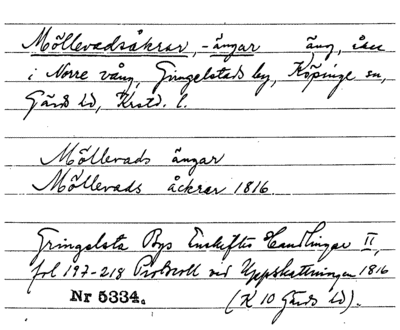 Möllevadsåkrar, -ängar äng, åker
i Norre vång, Gringelstads by, Köpinge sn,
Gärds hd, Krstd. l.
Möllevads ängar
Möllevads åckrar 1816
Gringelsta Bys Enskiftes Handlingar II,
fol 197-218 Protocoll vid Uppskattningen 1816
Nr 5334. (K 10 Gärds hd).